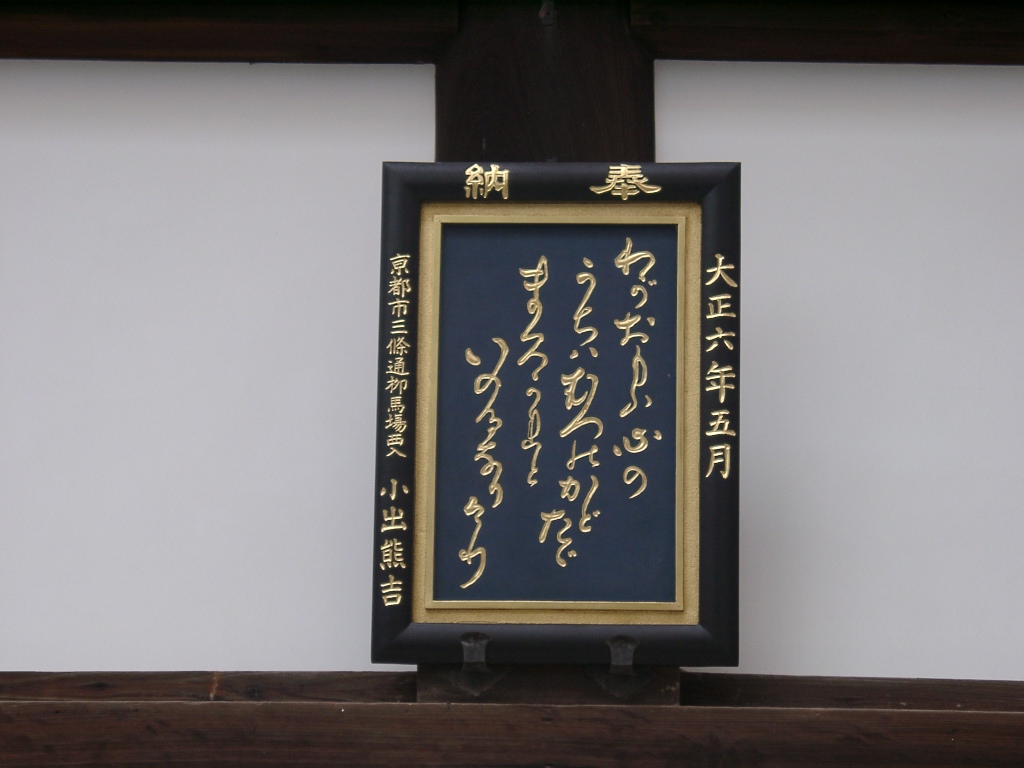 奉納
大正六年五月
わがおもふ心の
うちハむつのかど
ただ
まろかれと
いのるなりけり
亰都市三條通柳馬場西入 小出熊吉